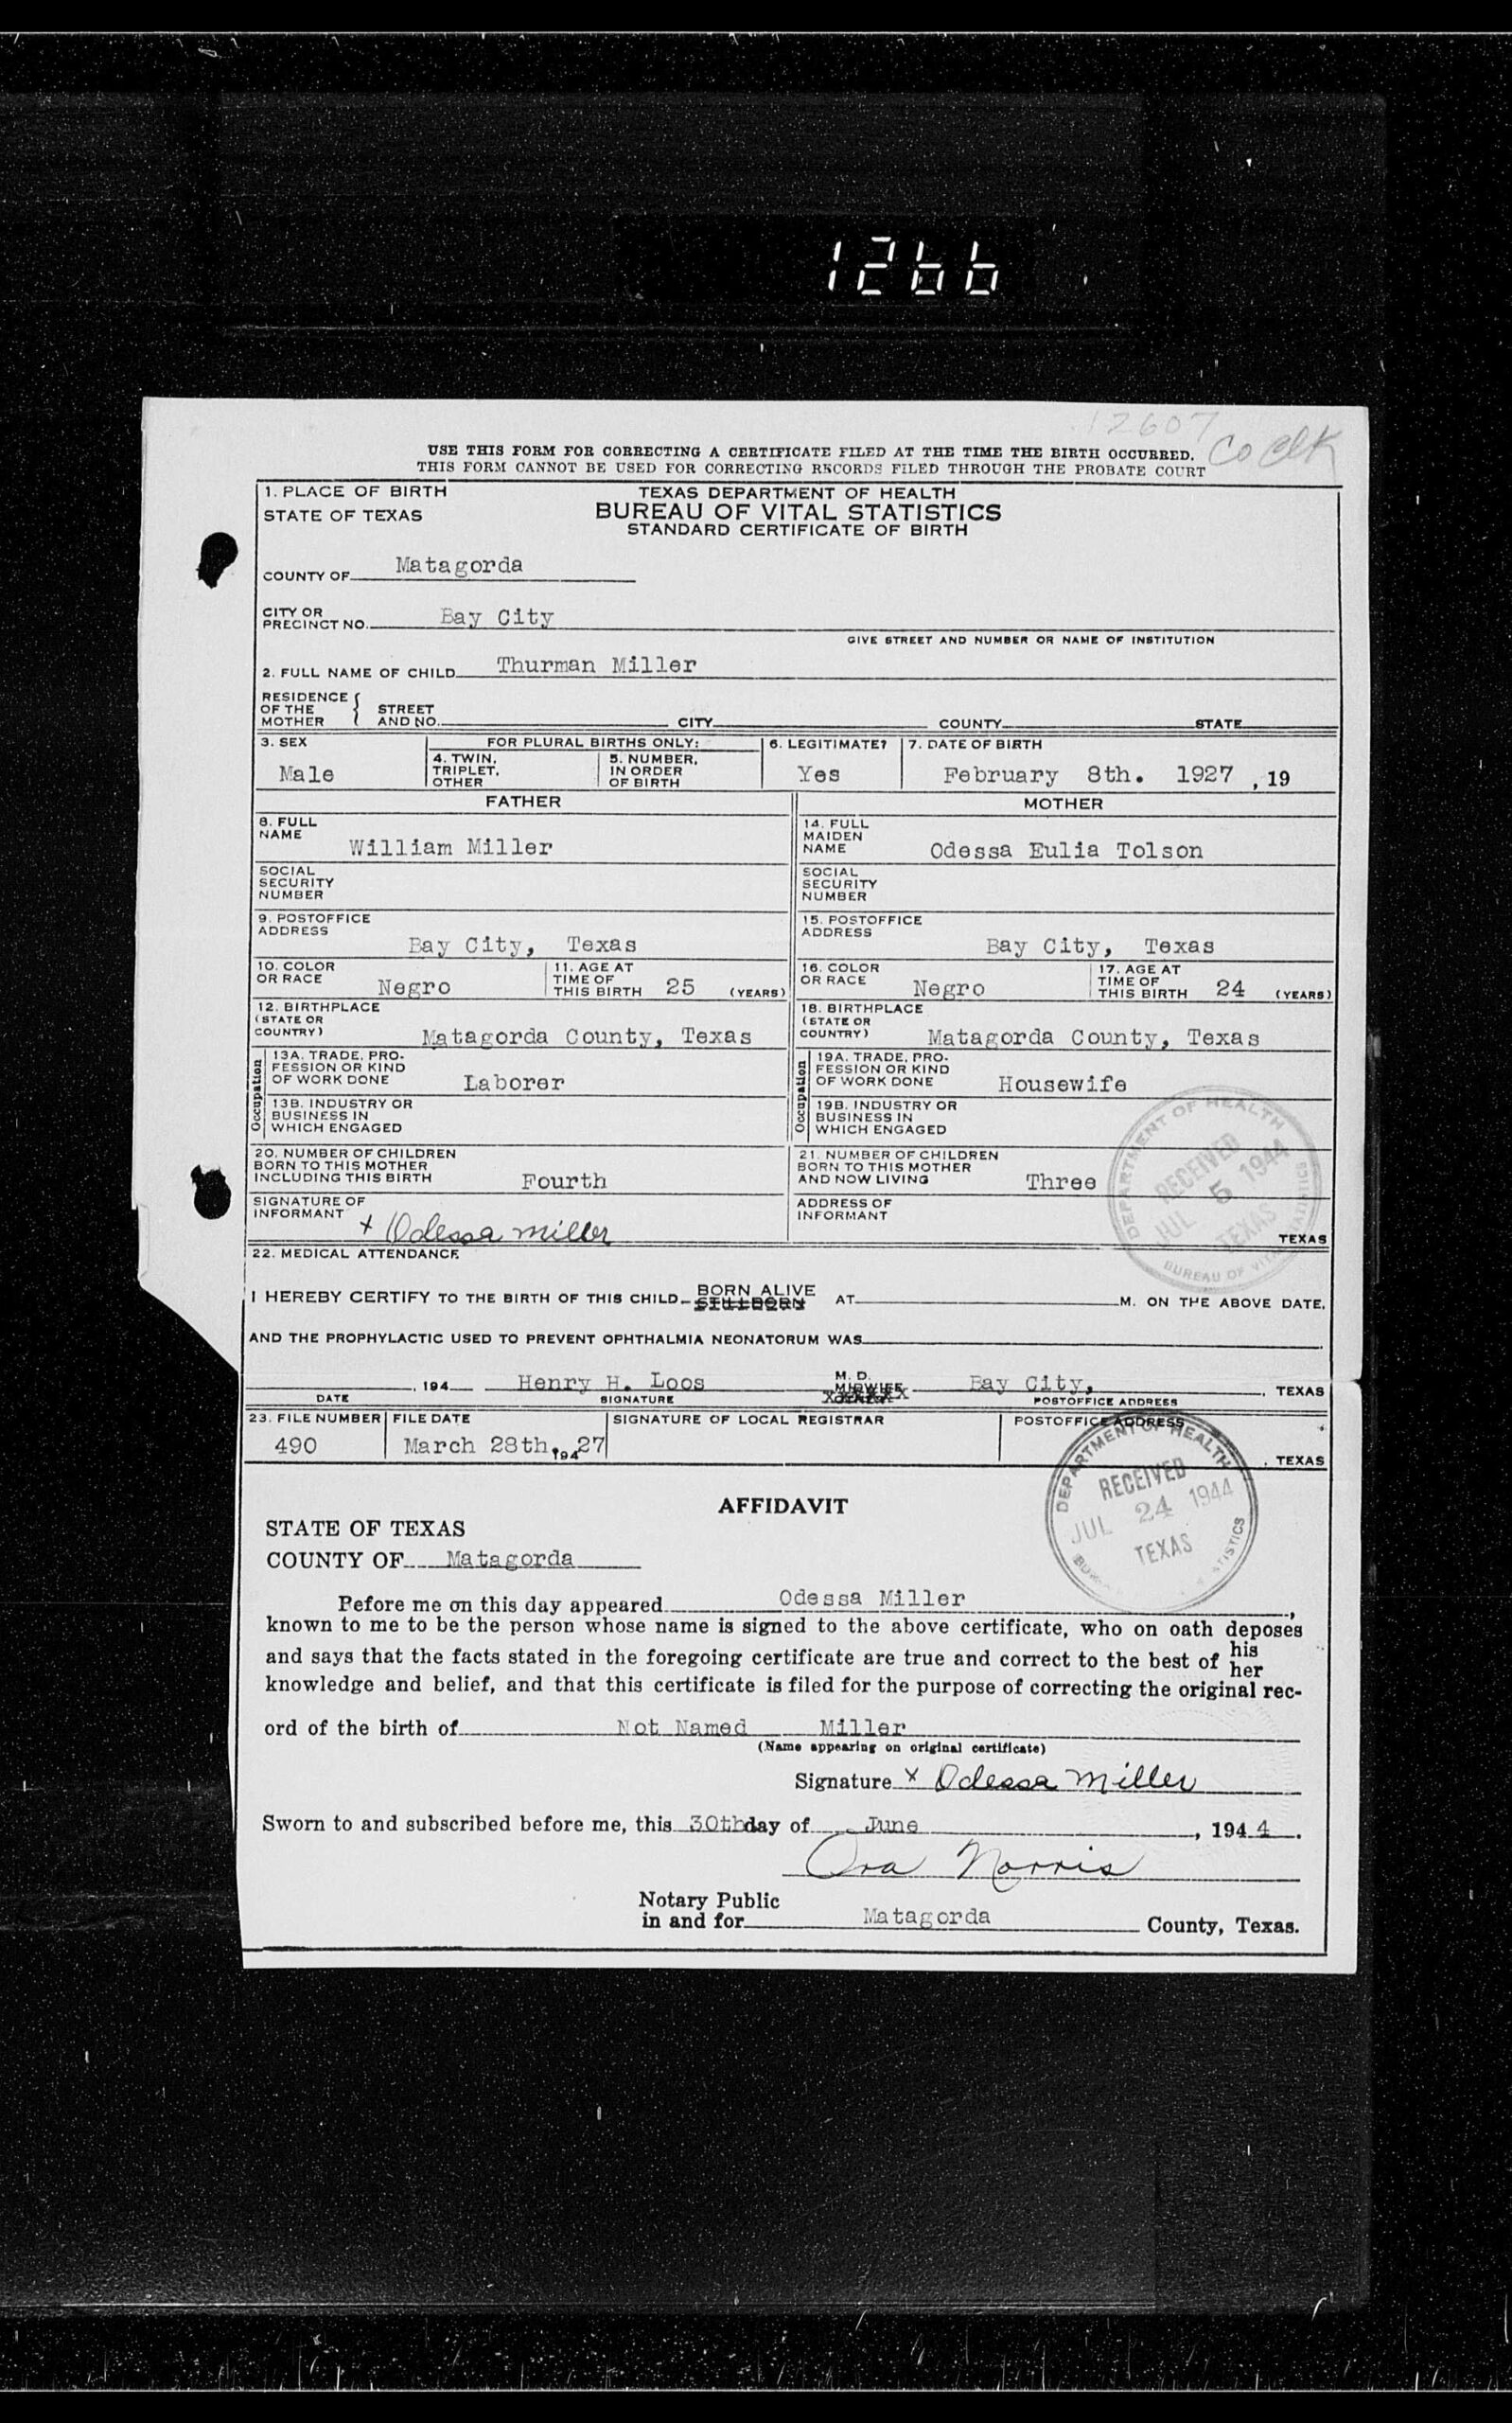 1266
12607
Co Clk
USE THIS FORM FOR CORRECTING A CERTIFICATE FILED AT THE TIME THE BIRTH OCCURRED.
THIS FORM CANNOT BE USED FOR CORRECTING RECORDS FILED THROUGH THE PROBATE COURT
1. PLACE OF BIRTH
STATE OF TEXAS
TEXAS DEPARTMENT OF HEALTH
BUREAU OF VITAL STATISTICS
STANDARD CERTIFICATE OF BIRTH
COUNTY OF Matagorda
CITY OR PRECINCT NO. Bay City
GIVE STREET AND NUMBER OR NAME OF INSTITUTION
2. FULL NAME OF CHILD Thurman Miller
RESIDENCE OF THE MOTHER { STREET AND NO. CITY COUNTY STATE
3. SEX Male
FOR PLURAL BIRTHS ONLY:
4. TWIN, TRIPLET, OTHER
5. NUMBER, IN ORDER OF BIRTH
6. LEGITIMATE? Yes
7. DATE OF BIRTH February 8th. 1927 , 19
FATHER
MOTHER
8. FULL NAME William Miller
14. FULL MAIDEN NAME Odessa Eulia Tolson
SOCIAL SECURITY NUMBER
SOCIAL SECURITY NUMBER
9. POSTOFFICE ADDRESS Bay City, Texas
15. POSTOFFICE ADDRESS Bay City, Texas
10. COLOR OR RACE Negro
11. AGE AT TIME OF THIS BIRTH 25 (YEARS)
16. COLOR OR RACE Negro
17. AGE AT TIME OF THIS BIRTH 24 (YEARS)
12. BIRTHPLACE (STATE OR COUNTRY) Matagorda County, Texas
18. BIRTHPLACE (STATE OR COUNTRY) Matagorda County, Texas
Occupation
13A. TRADE, PROFESSION OR KIND OF WORK DONE Laborer
13B. INDUSTRY OR BUSINESS IN WHICH ENGAGED
Occupation
19A. TRADE, PROFESSION OR KIND OF WORK DONE Housewife
19B. INDUSTRY OR BUSINESS IN WHICH ENGAGED
20. NUMBER OF CHILDREN BORN TO THIS MOTHER INCLUDING THIS BIRTH Fourth
21. NUMBER OF CHILDREN BORN TO THIS MOTHER AND NOW LIVING Three
DEPARTMENT OF HEALTH
RECEIVED
JUL 5 1944
TEXAS
BUREAU OF VITAL STATISTICS
SIGNATURE OF INFORMANT x Odessa Miller
ADDRESS OF INFORMANT TEXAS
22. MEDICAL ATTENDANCE
I HEREBY CERTIFY TO THE BIRTH OF THIS CHILD BORN ALIVE STILLBORN AT M. ON THE ABOVE DATE,
AND THE PROPHYLACTIC USED TO PREVENT OPHTHALMIA NEONATORUM WAS
, 194 Henry H. Loos M. D. MIDWIFE Bay City, , TEXAS
DATE SIGNATURE POSTOFFICE ADDRESS
23. FILE NUMBER 490
FILE DATE March 28th, 194 27
SIGNATURE OF LOCAL REGISTRAR
POSTOFFICE ADDRESS
, TEXAS
DEPARTMENT OF HEALTH
RECEIVED
JUL 24 1944
TEXAS
AFFIDAVIT
STATE OF TEXAS
COUNTY OF Matagorda
Before me on this day appeared Odessa Miller ,
known to me to be the person whose name is signed to the above certificate, who on oath deposes
and says that the facts stated in the foregoing certificate are true and correct to the best of his her
knowledge and belief, and that this certificate is filed for the purpose of correcting the original rec-
ord of the birth of Not Named Miller
(Name appearing on original certificate)
Signature x Odessa Miller
Sworn to and subscribed before me, this 30th day of June , 1944.
Ora Norris
Notary Public
in and for Matagorda County, Texas.